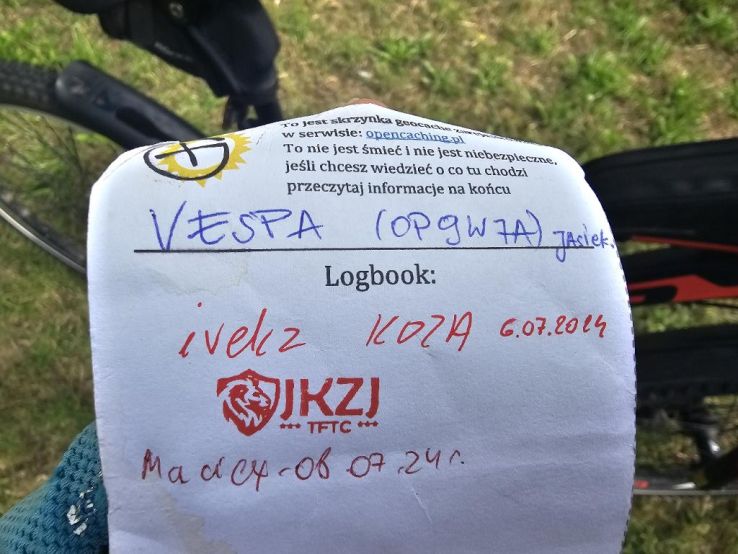 To jest skrzynka geocache
w serwisie: opencaching.pl
To nie jest śmieć i nie jest niebezpieczne,
jeśli chcesz wiedzieć o co tu chodzi
przeczytaj informacje na końcu
VESPA (OP9W7A) Jasiek.
Logbook:
ivekz KOZA 6.07.2024
JKZJ
*** TFTC ***
07.24r.